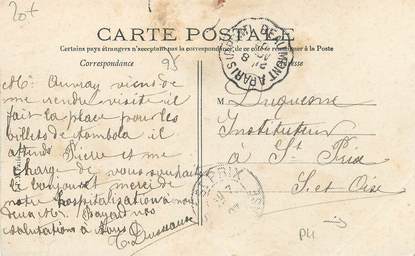 20+
CARTE POSTALE
Certains pays étrangers n'acceptant pas la correspondance, de ce côté se renseigner à la Poste
Correspondance
95
Mr vient de
me rendre visite il
fait la place pour les
billets de tombola il
attends Pierre et me
charge de vous souhaiter
le bonjour et merci de
notre hospitalisation à nous
deux Mr
salutations à vous
M. Duquesne
Instituteur
à St Prix
S. et Oise
ST PRIX
PH →